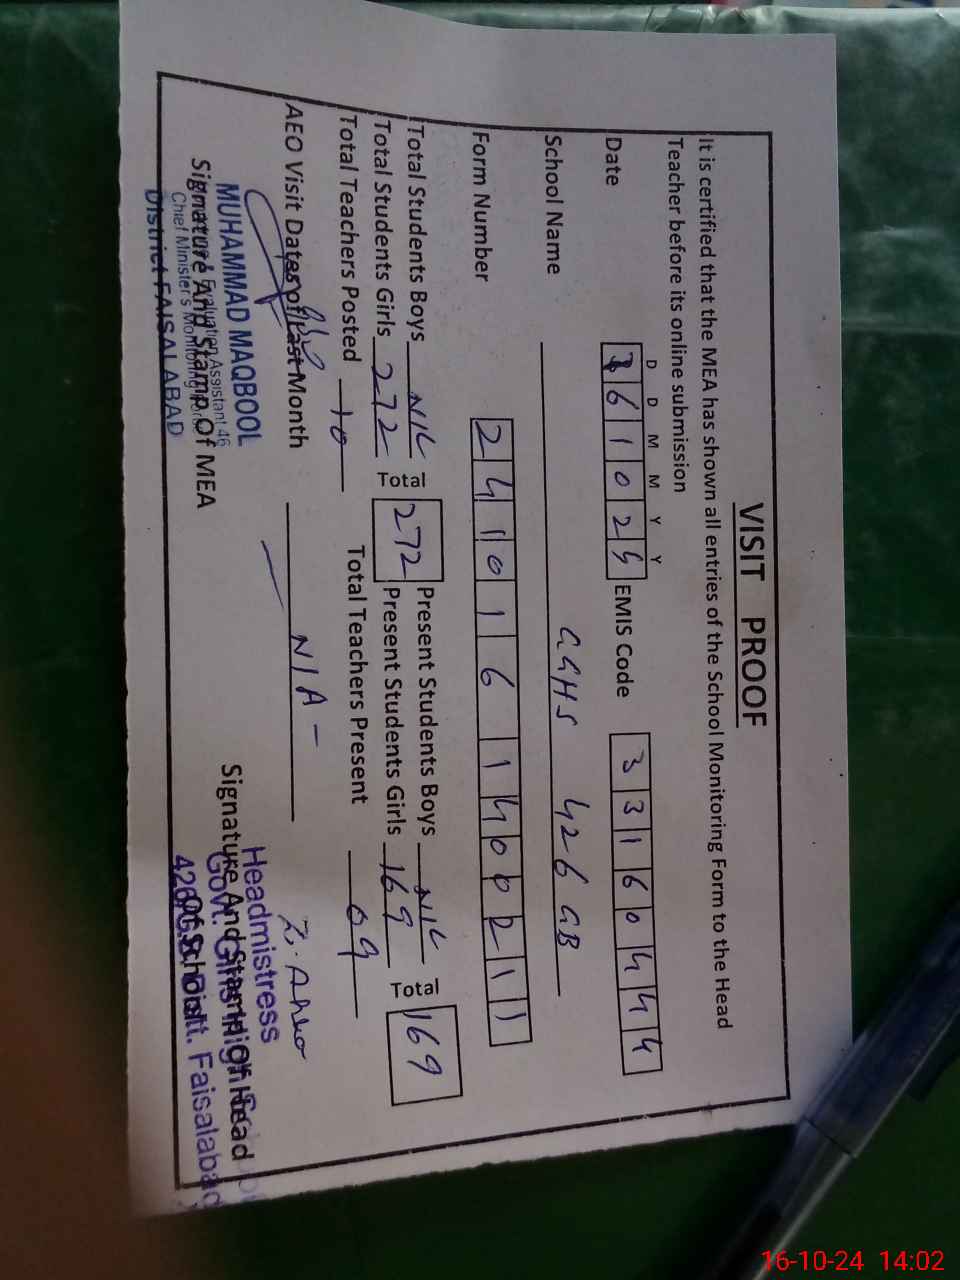 VISIT PROOF
It is certified that the MEA has shown all entries of the School Monitoring Form to the Head
Teacher before its online submission
D D M M Y Y
Date 161024 EMIS Code 33160444
School Name GGHS 426 GB
Form Number 2410161400211
Total Students Boys NIL Total 272 Present Students Boys NIL Total 169
Total Students Girls 272 Present Students Girls 169
Total Teachers Posted 10 Total Teachers Present 09
AEO Visit Dates of Last Month N/A -
MUHAMMAD MAQBOOL
Evaluation Assistant 46
Chief Minister's Monitoring Force
District FAISALABAD
Signature And Stamp Of MEA
Headmistress
Govt. Girls High
426 GB Distt. Faisalabad
Signature And Stamp of Head
Of School
16-10-24 14:02